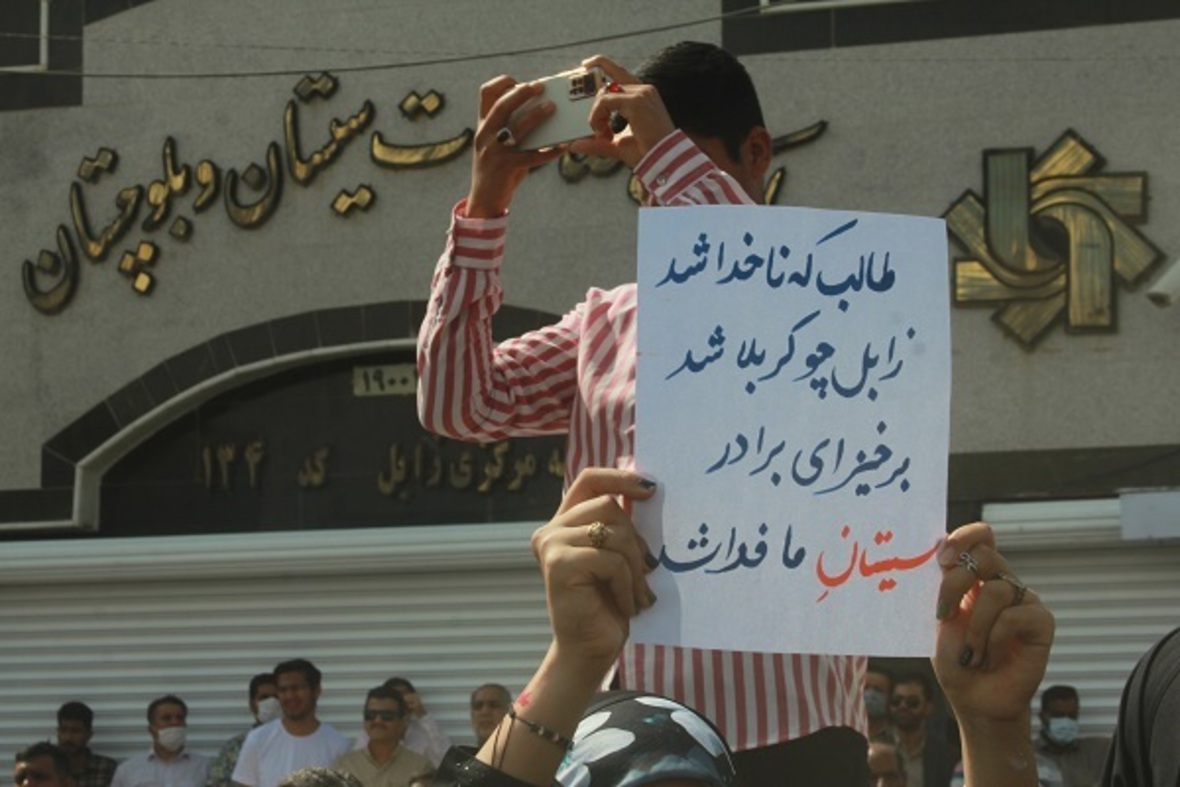 ت سیستان و بلوچستان
۱۹۰۰
مرکزی زابل کد ۱۳۴
طالب که ناخدا شد
زابل چو کربلا شد
برخیز ای برادر
سیستانِ ما فدا شد